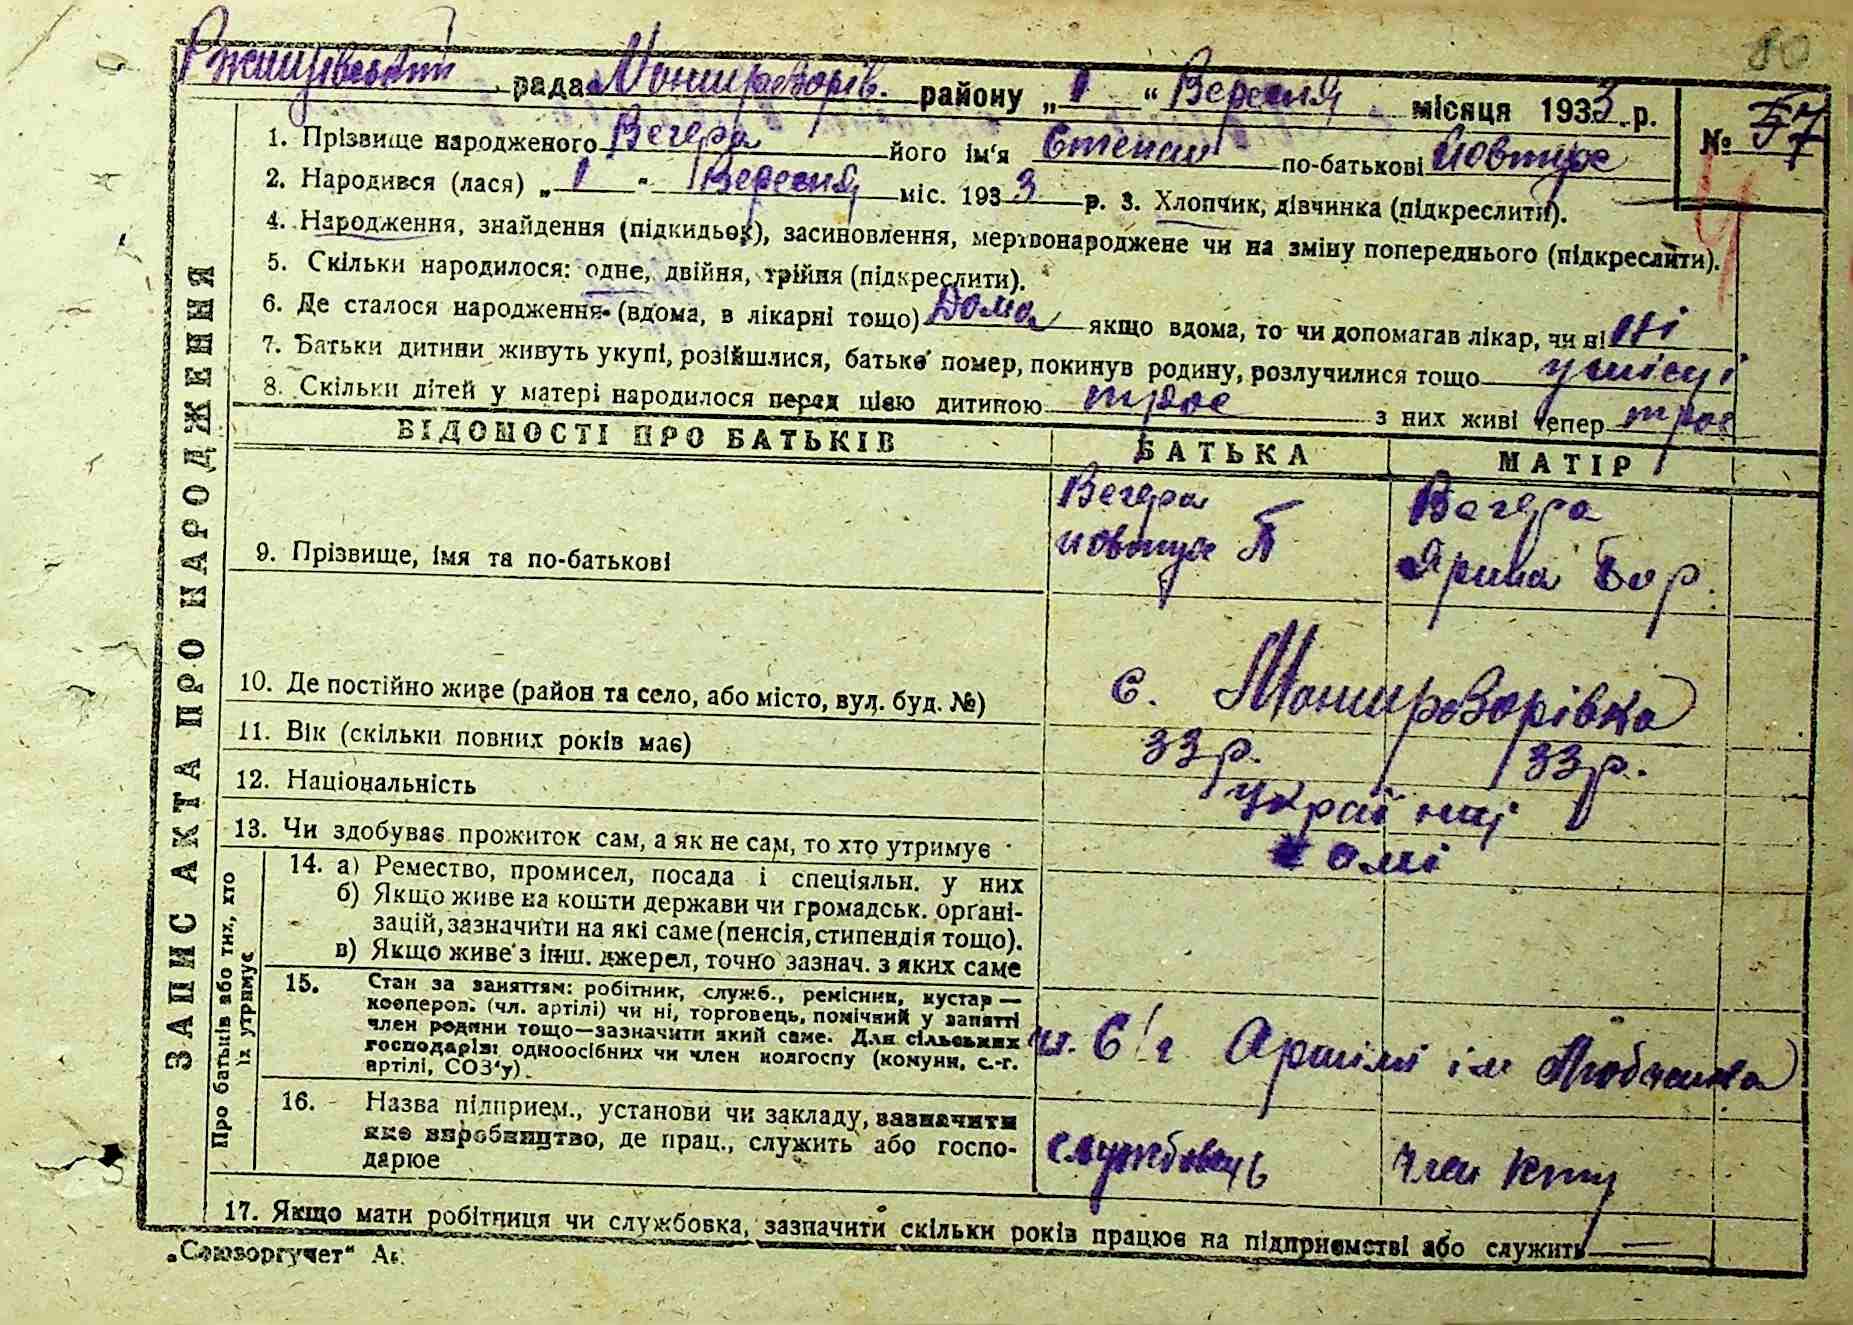 80
рада Мошуроворів. району „ 1 “ Вересня місяця 1933 р.
№ 57
1. Прізвище народженого Вегера його ім'я Степан по-батькові Йовтухо
2. Народився (лася) „ 1 - Вересня міс. 1933 р. 3. Хлопчик, дівчинка (підкреслити).
4. Народження, знайдення (підкидьок), засиновлення, мертвонароджене чи на зміну попереднього (підкреслити).
5. Скільки народилося: одне, двійня, трійня (підкреслити).
6. Де сталося народження (вдома, в лікарні тощо) Дома якщо вдома, то чи допомагав лікар, чи ні ні
7. Батьки дитини живуть укупі, розійшлися, батько помер, покинув родину, розлучилися тощо
8. Скільки дітей у матері народилося перед цією дитиною троє з них живі тепер троє
ЗАПИС АКТА ПРО НАРОДЖЕННЯ
ВІДОМОСТІ ПРО БАТЬКІВ БАТЬКА МАТІР
9. Прізвище, імя та по-батькові
Вегера
Йовтух П
Вегера
Ярина Бор.
10. Де постійно живе (район та село, або місто, вул. буд. №) с. Мошуроворівка
11. Вік (скільки повних років має) 33 р. 33 р.
12. Національність україн ці
13. Чи здобуває прожиток сам, а як не сам, то хто утримує самі
Про батьків або тих, хто їх утримує
14. а) Ремество, промисел, посада і спеціяльн. у них
б) Якщо живе на кошти держави чи громадськ. орґані-
зацій, зазначити на які саме (пенсія, стипендія тощо).
в) Якщо живе з інш. джерел, точно зазнач. з яких саме
15. Стан за заняттям: робітник, служб., ремісник, кустар —
кооперов. (чл. артілі) чи ні, торговець, помічний у занятті
член родини тощо—зазначити який саме. Для сільських
господарів: одноосібних чи член колгоспу (комуни, с.-г.
артілі, СОЗ'у).
чл. С/г Артілі ім
16. Назва підприєм., установи чи закладу, зазначити
яке виробництво, де прац., служить або госпо-
дарює
службовець член
17. Якщо мати робітниця чи службовка, зазначити скільки років працює на підприємстві або служить —
„Союзоргучет“